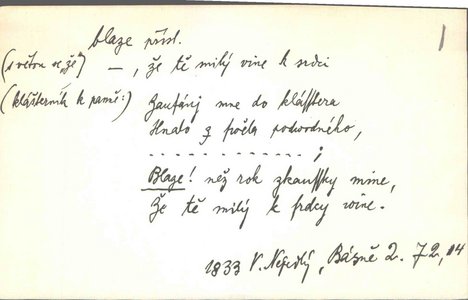 blaze přísl. 1
(světru se zě) —, že tě milý vine k srdci
(klášterník k paměť:) Zaufánj mne do klásstera
Hnalo z swěta podwodného,
. . . . . . . . . . . . . . ;
Blaze! než rok zkaussky mine,
Že tě milý k srdcy wine.
1833 V. Nejedlý, Básně 2. 72, 14